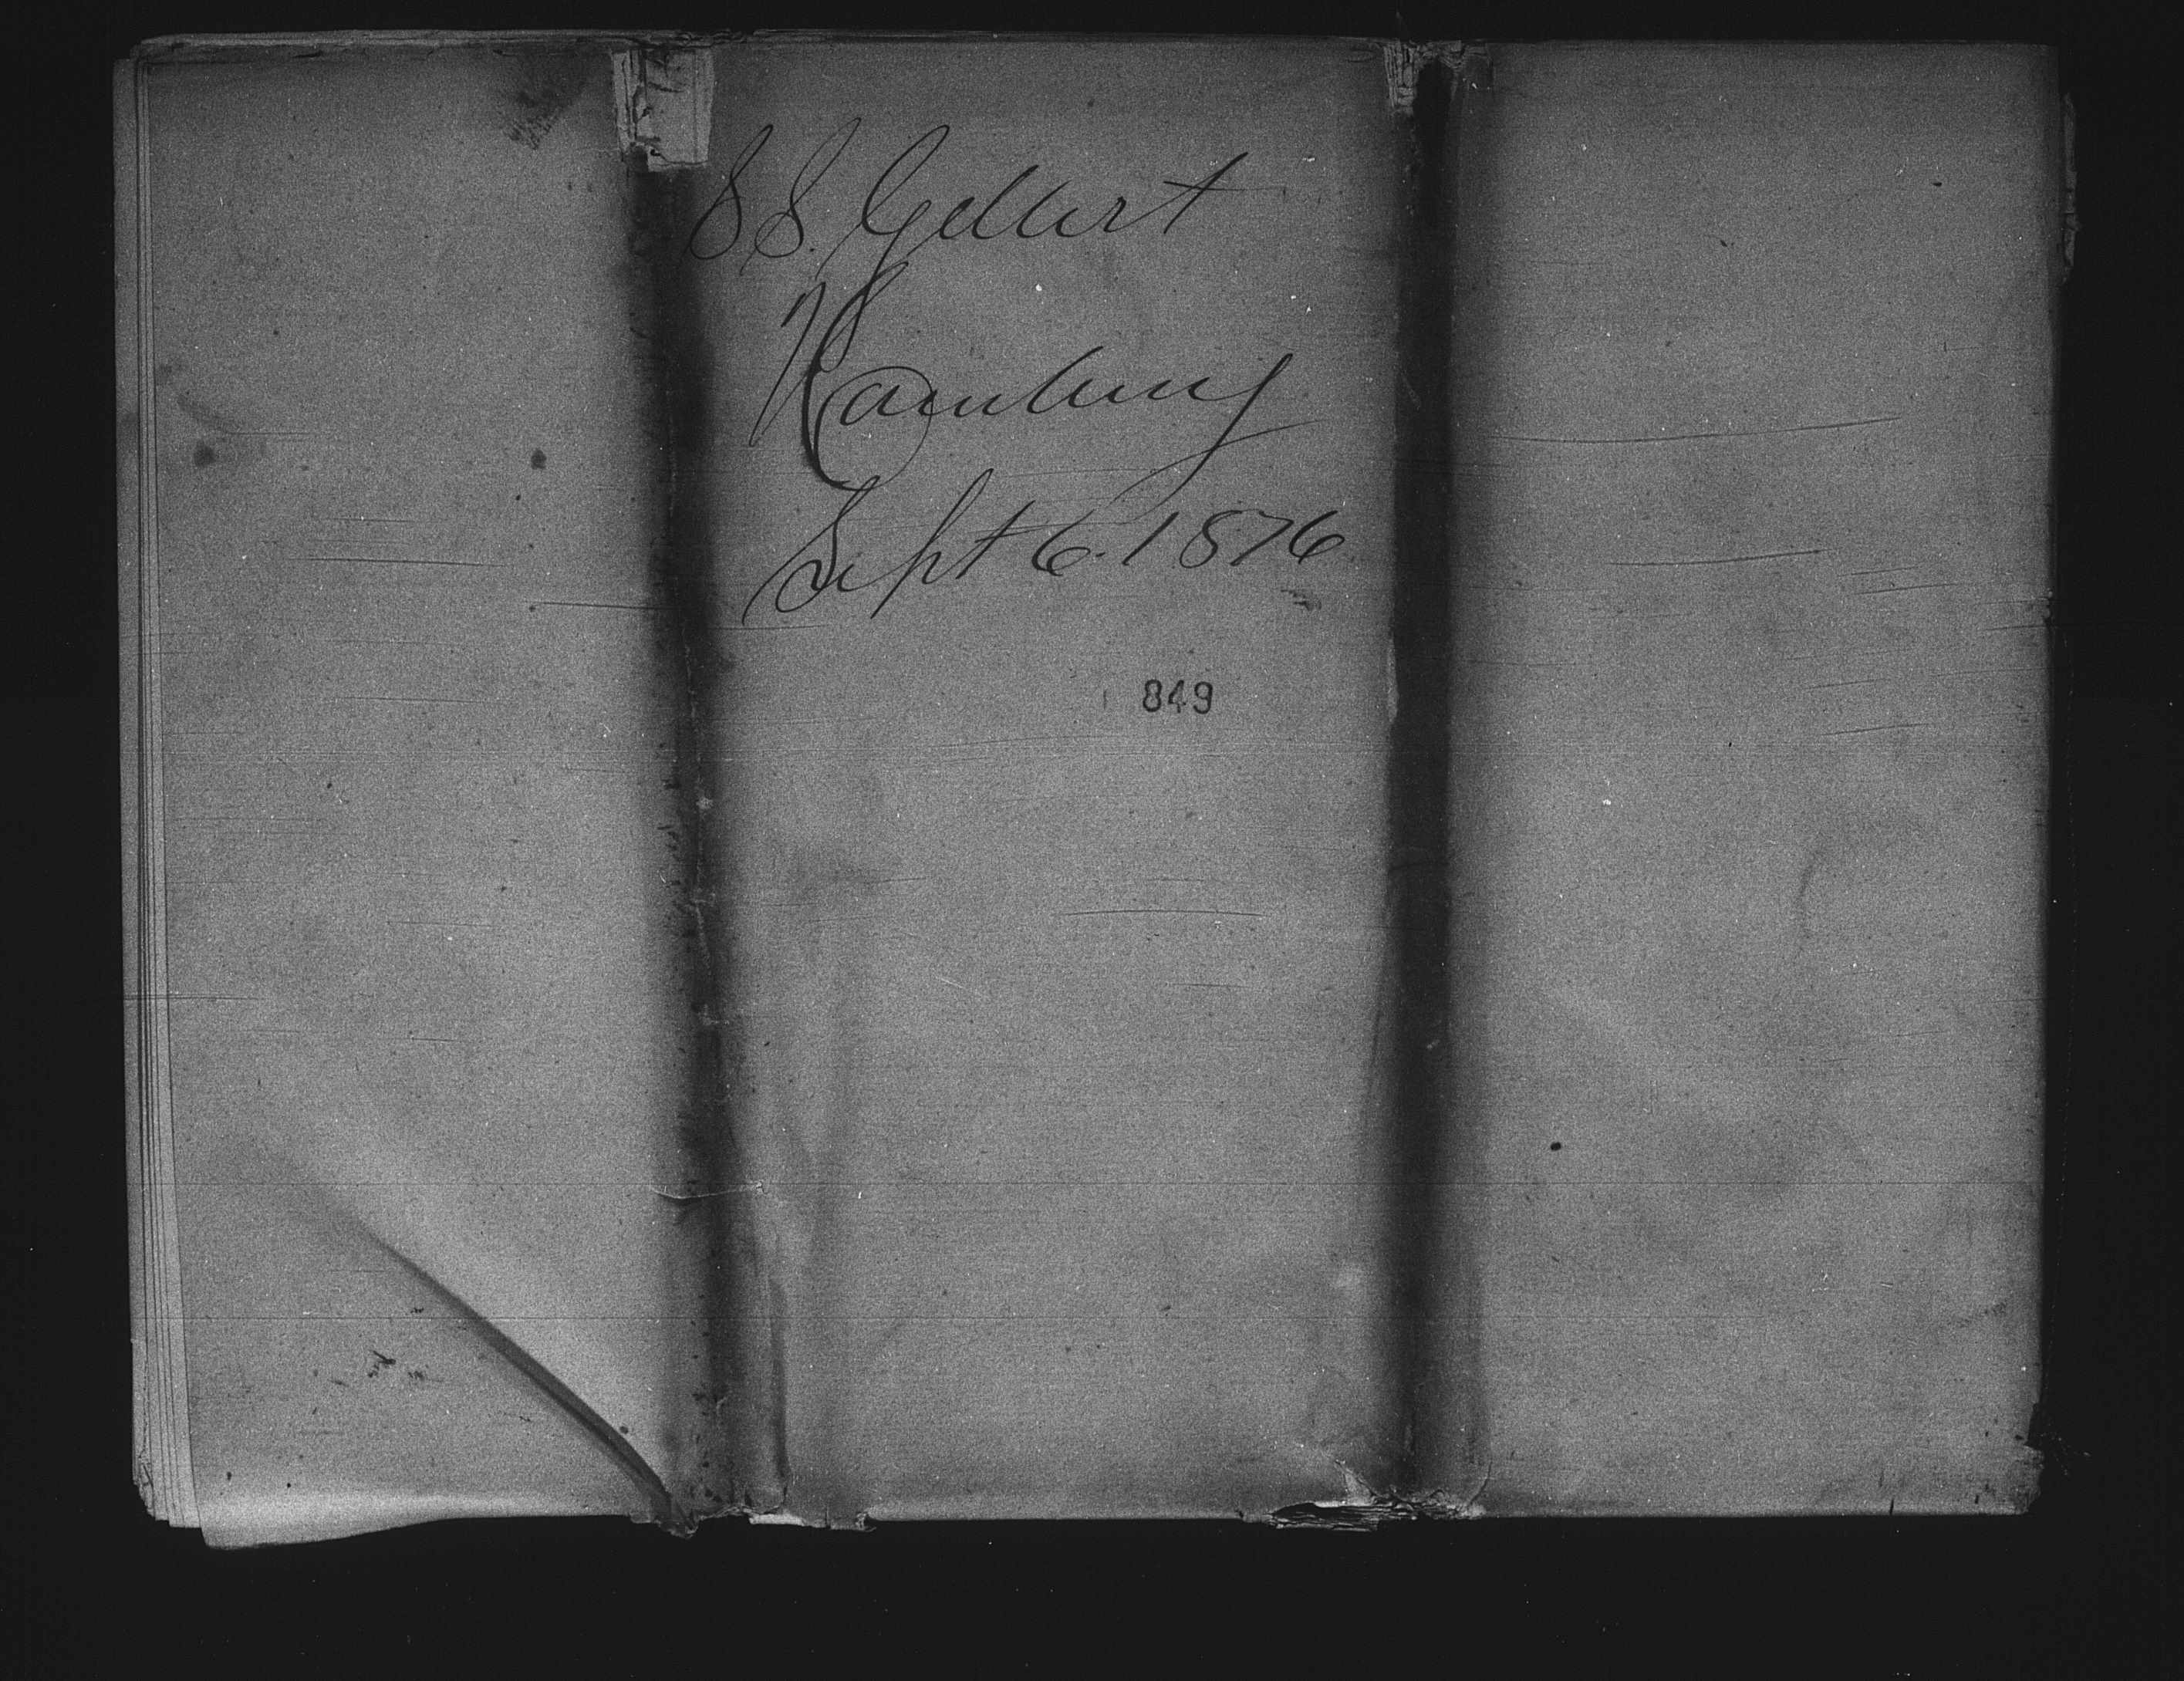 SS. Gellert
Hamburg
Sept 6. 1876
849